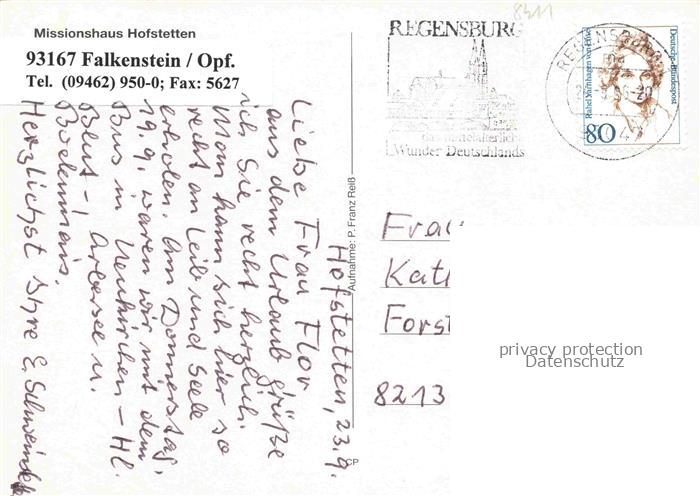 8411
Missionshaus Hofstetten
93167 Falkenstein / Opf.
Tel. (09462) 950-0; Fax: 5627
Hofstetten, 23.9.
Liebe Frau Flor
aus dem Urlaub grüße
ich Sie recht herzlich.
Man kann sich hier so
recht an Leib und Seele
erholen. Am Donnerstag,
19.9. waren wir mit dem
Bus in Neukirchen-Hl.
Blut-, Arbersee u.
Bodenmais.
Herzlichst Ihre E.
Aufnahme: P. Franz Reiß
CP
REGENSBURG
das mittelalterliche
Wunder Deutschlands
REGENSBURG
Rahel Varnhagen von Ense
Deutsche Bundespost
80
Frau
Kat
Forst
8213
privacy protection
Datenschutz